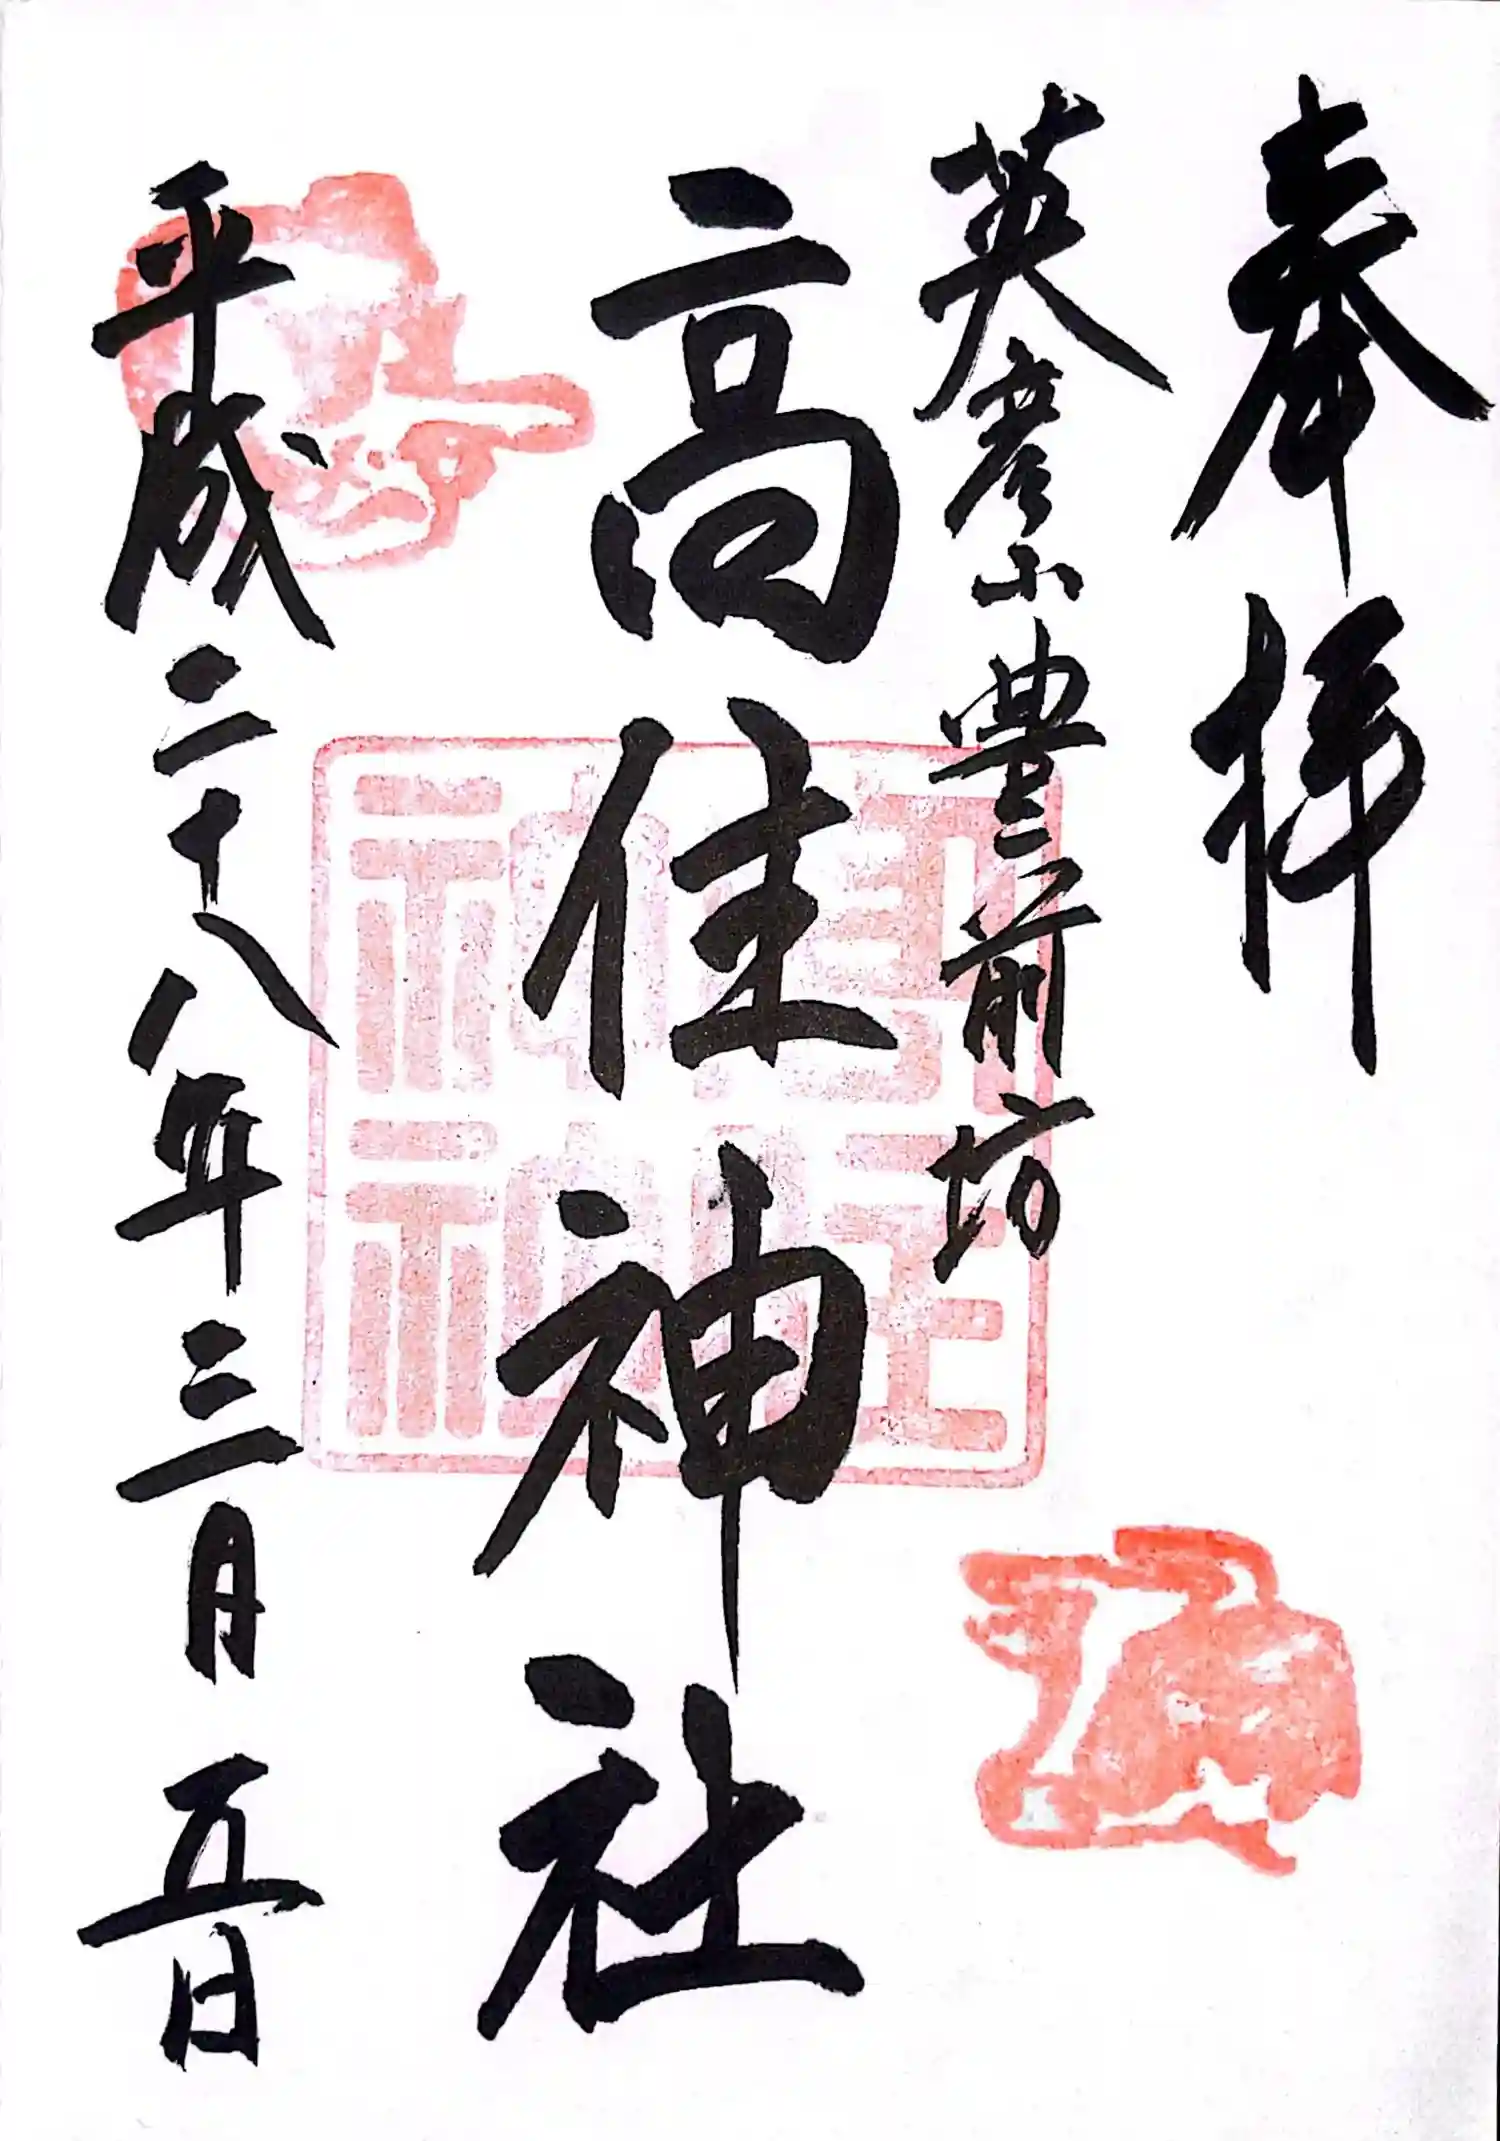 奉拝
英彦山豊前坊
高住神社
平成二十八年三月五日
高住
神社